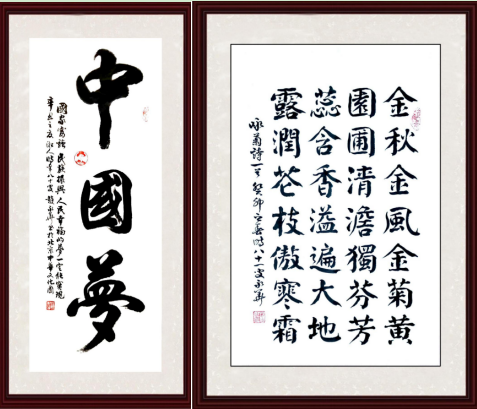 中國夢
國家富強 民族振興 人民幸福的夢一定能實現
金秋金風金菊黃
園圃清澹獨芬芳
蕊含香溢遍大地
露潤花枝傲寒霜
詠菊詩一首 癸卯之春時八十一叟永華